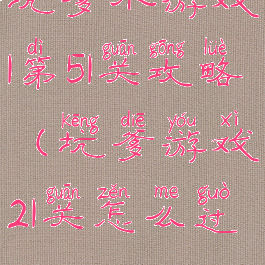 坑爹 游戏
dì guān gōng lüè
1第51关攻略
kēng diē yóu xì
(坑爹游戏
guān zěn me guò
21关怎么过